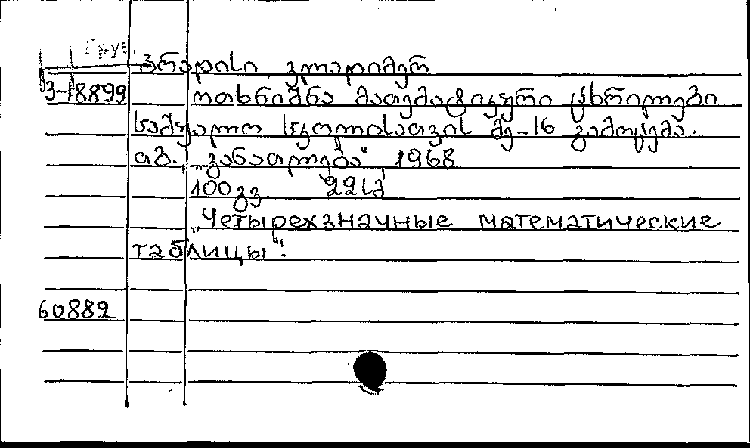 Груз
ბრადისი ვლადიმერ
3-18899 ოთხნიშნა მათემატიკური ცხრილები
საშუალო სკოლისათვის მე-16 გამოცემა.
თბ. „განათლება" 1968
100 გვ 22 კ
„Четырехзначные математические
таблицы".
60882